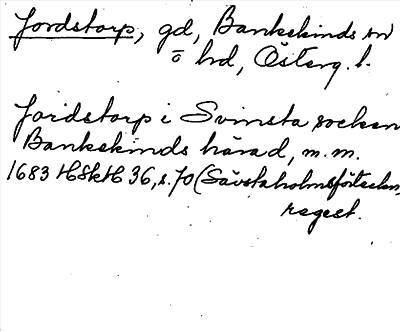 Jordstorp, gd, Bankekinds sn
o hd, Österg. l.
Jordstorp i Svinsta socken
Bankekinds härad, m.m.
1683 HSkH 36, s. 70 (Sävstaholmsförteckn.
regest.